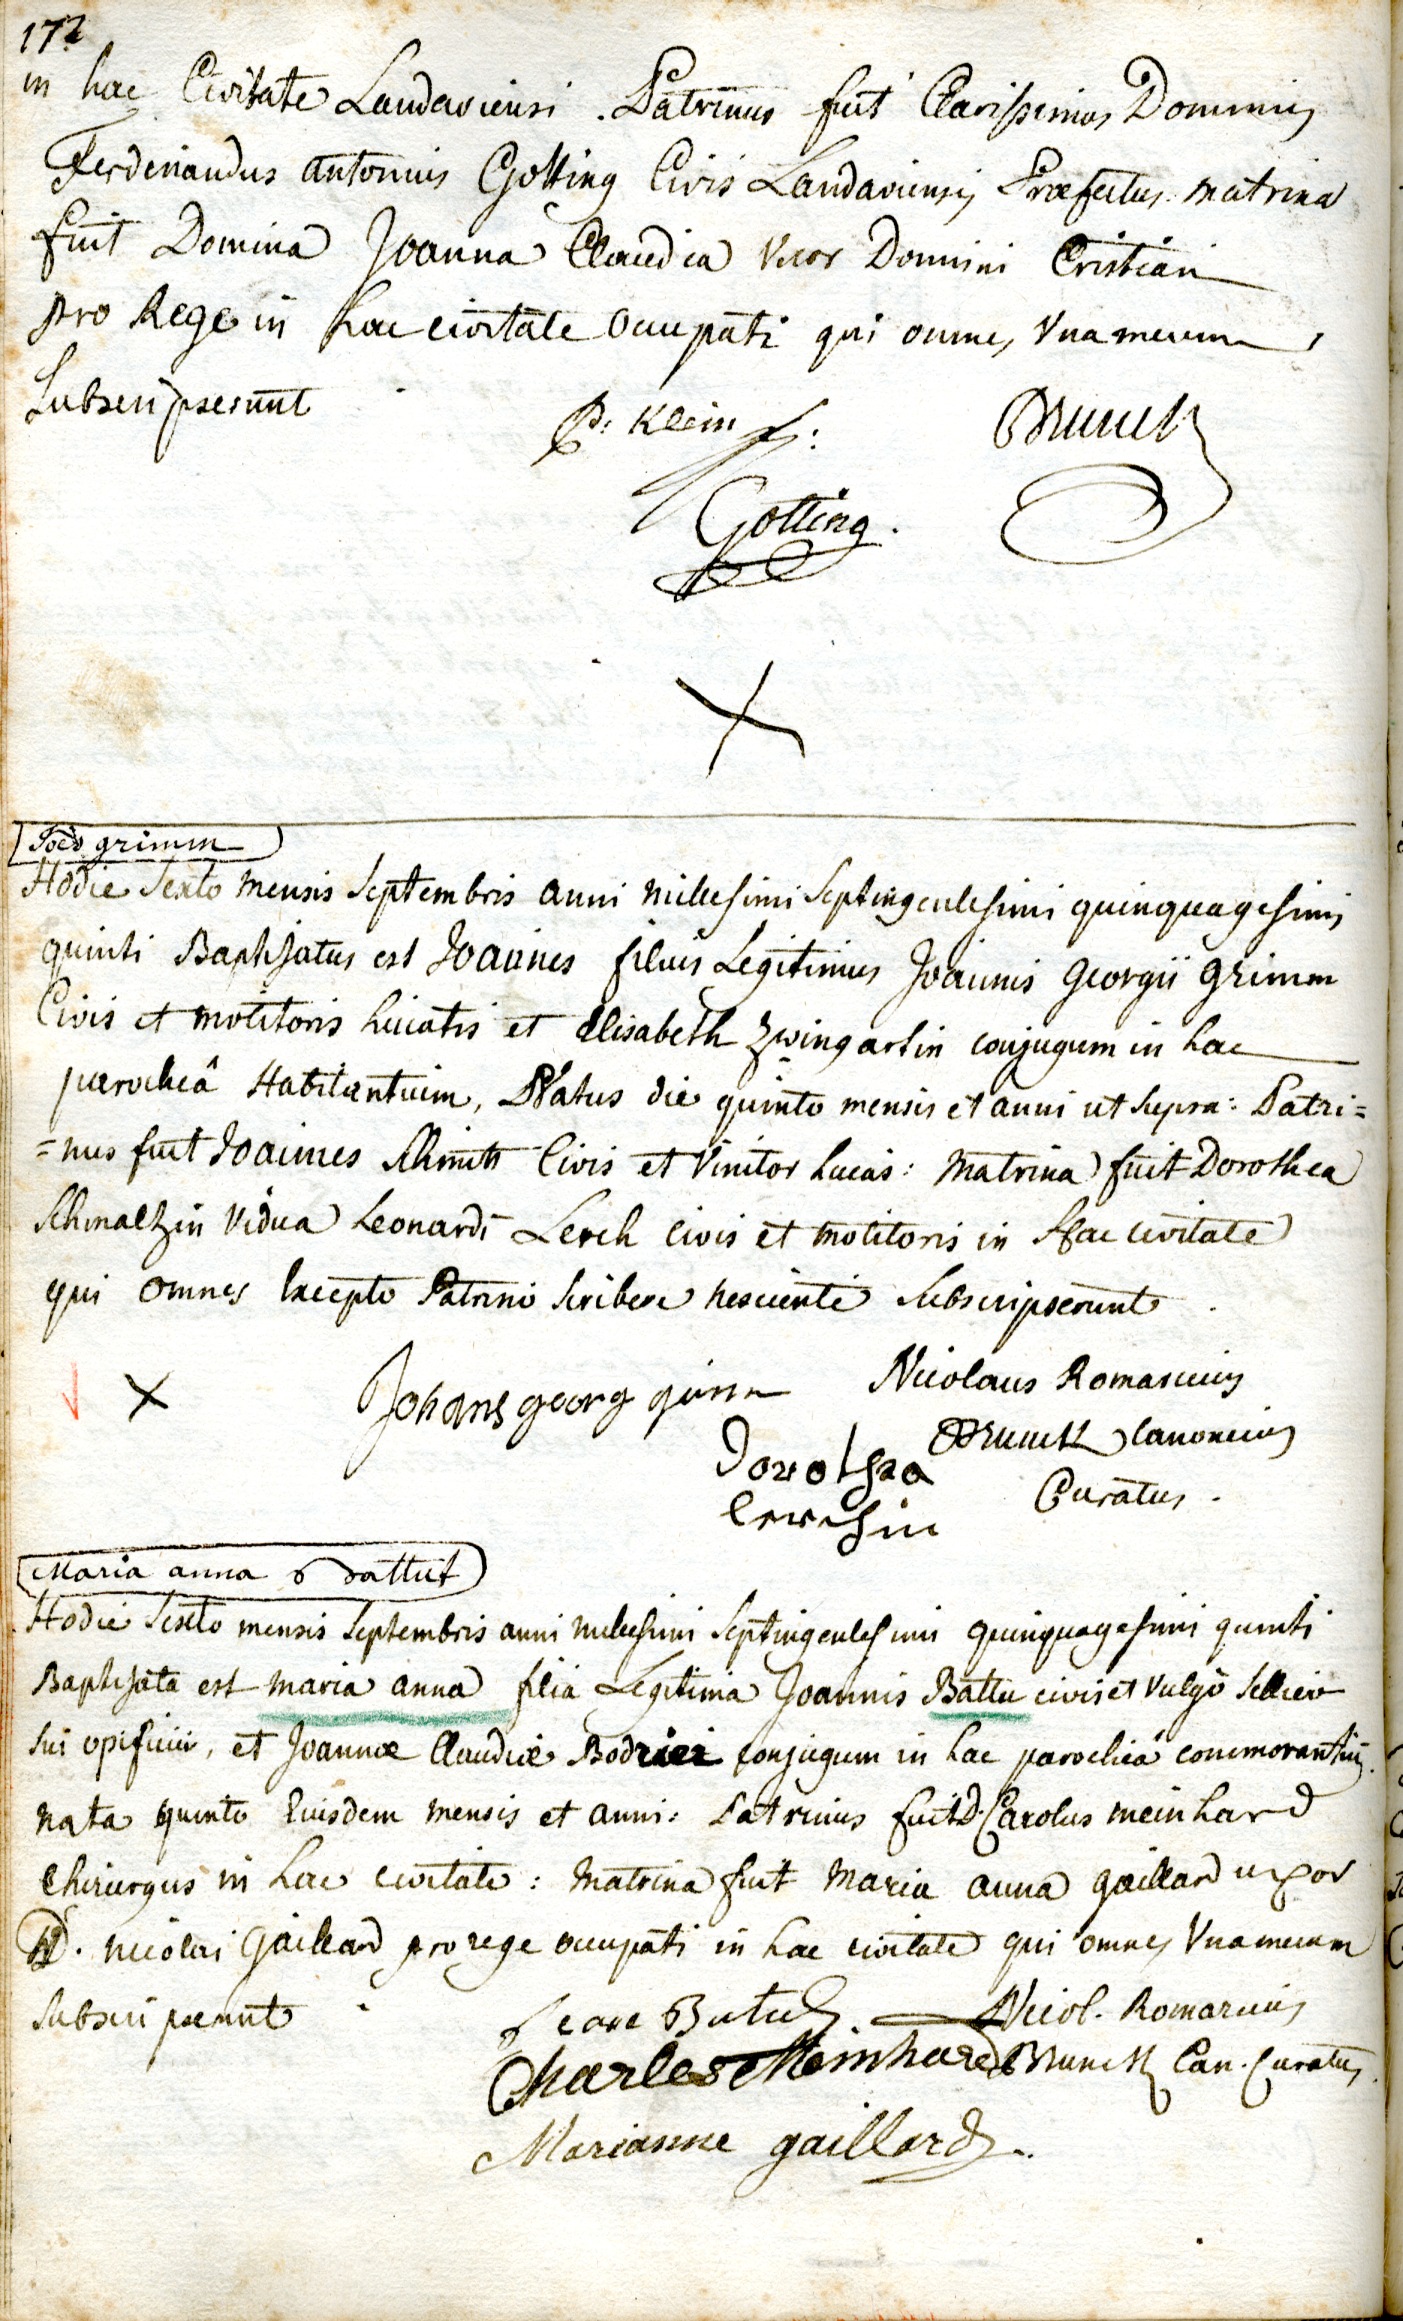 172
in hac Civitate Landaviensi. Patrinus fuit Clarissimus Dominus
Ferdenandus antonius Gotting Civis Landaviensis Præfectus. matrina
fuit Domina Joanna Claudia Vxor Domini Cristian
pro Rege in hac civitate occupati qui omnes Vna mecum
Subscripserunt
P. Klein
Brunck
Gotting.
Joês grimm
Hodie Sexto mensis Septembris anni millesimi Septingentesimi quinquagesimi
quinti Baptisatus est Joannes filius Legitimus Joannis Georgii Grimm
Civis et molitoris huiatis et Elisabeth Zwingartin conjugum in hac
parochiâ Habitantium, Natus die quinto mensis et anni ut supra: Patri=
=nus fuit Joannes Schmitt Civis et Vinitor hucas: Matrina fuit Dorothea
Schmaltzin Vidua Leonardi Lerch civis et molitoris in hac civitate
qui omnes Excepto Patrino scribere nesciente Subscripserunt.
Johans georg grimm
Nicolaus Romaricus
Brunck Canonicus
Dorothea
Curatus.
Lerchin
Maria anna battut
Hodie Sexto mensis Septembris anni millesimi Septingentesimi quinquagesimi quinti
Baptisata est maria anna filia Legitima Joannis Battu civis et vulgò Sellier
sui opificii, et Joannæ Claudiæ Bodrier conjugum in hac parochiâ commorantium.
nata quinto Eiusdem mensis et anni: Patrinus fuit D. Carolus meinhard
Chirurgus in hac civitate: matrina fuit Maria anna gaillard uxor
D. nicolai Gaillard pro rege occupati in hac civitate qui omnes Vna mecum
Subscripserunt
Nicol. Romaricus
Charles Meinhard
Brunck Can. Curatus.
Marianne gaillard.